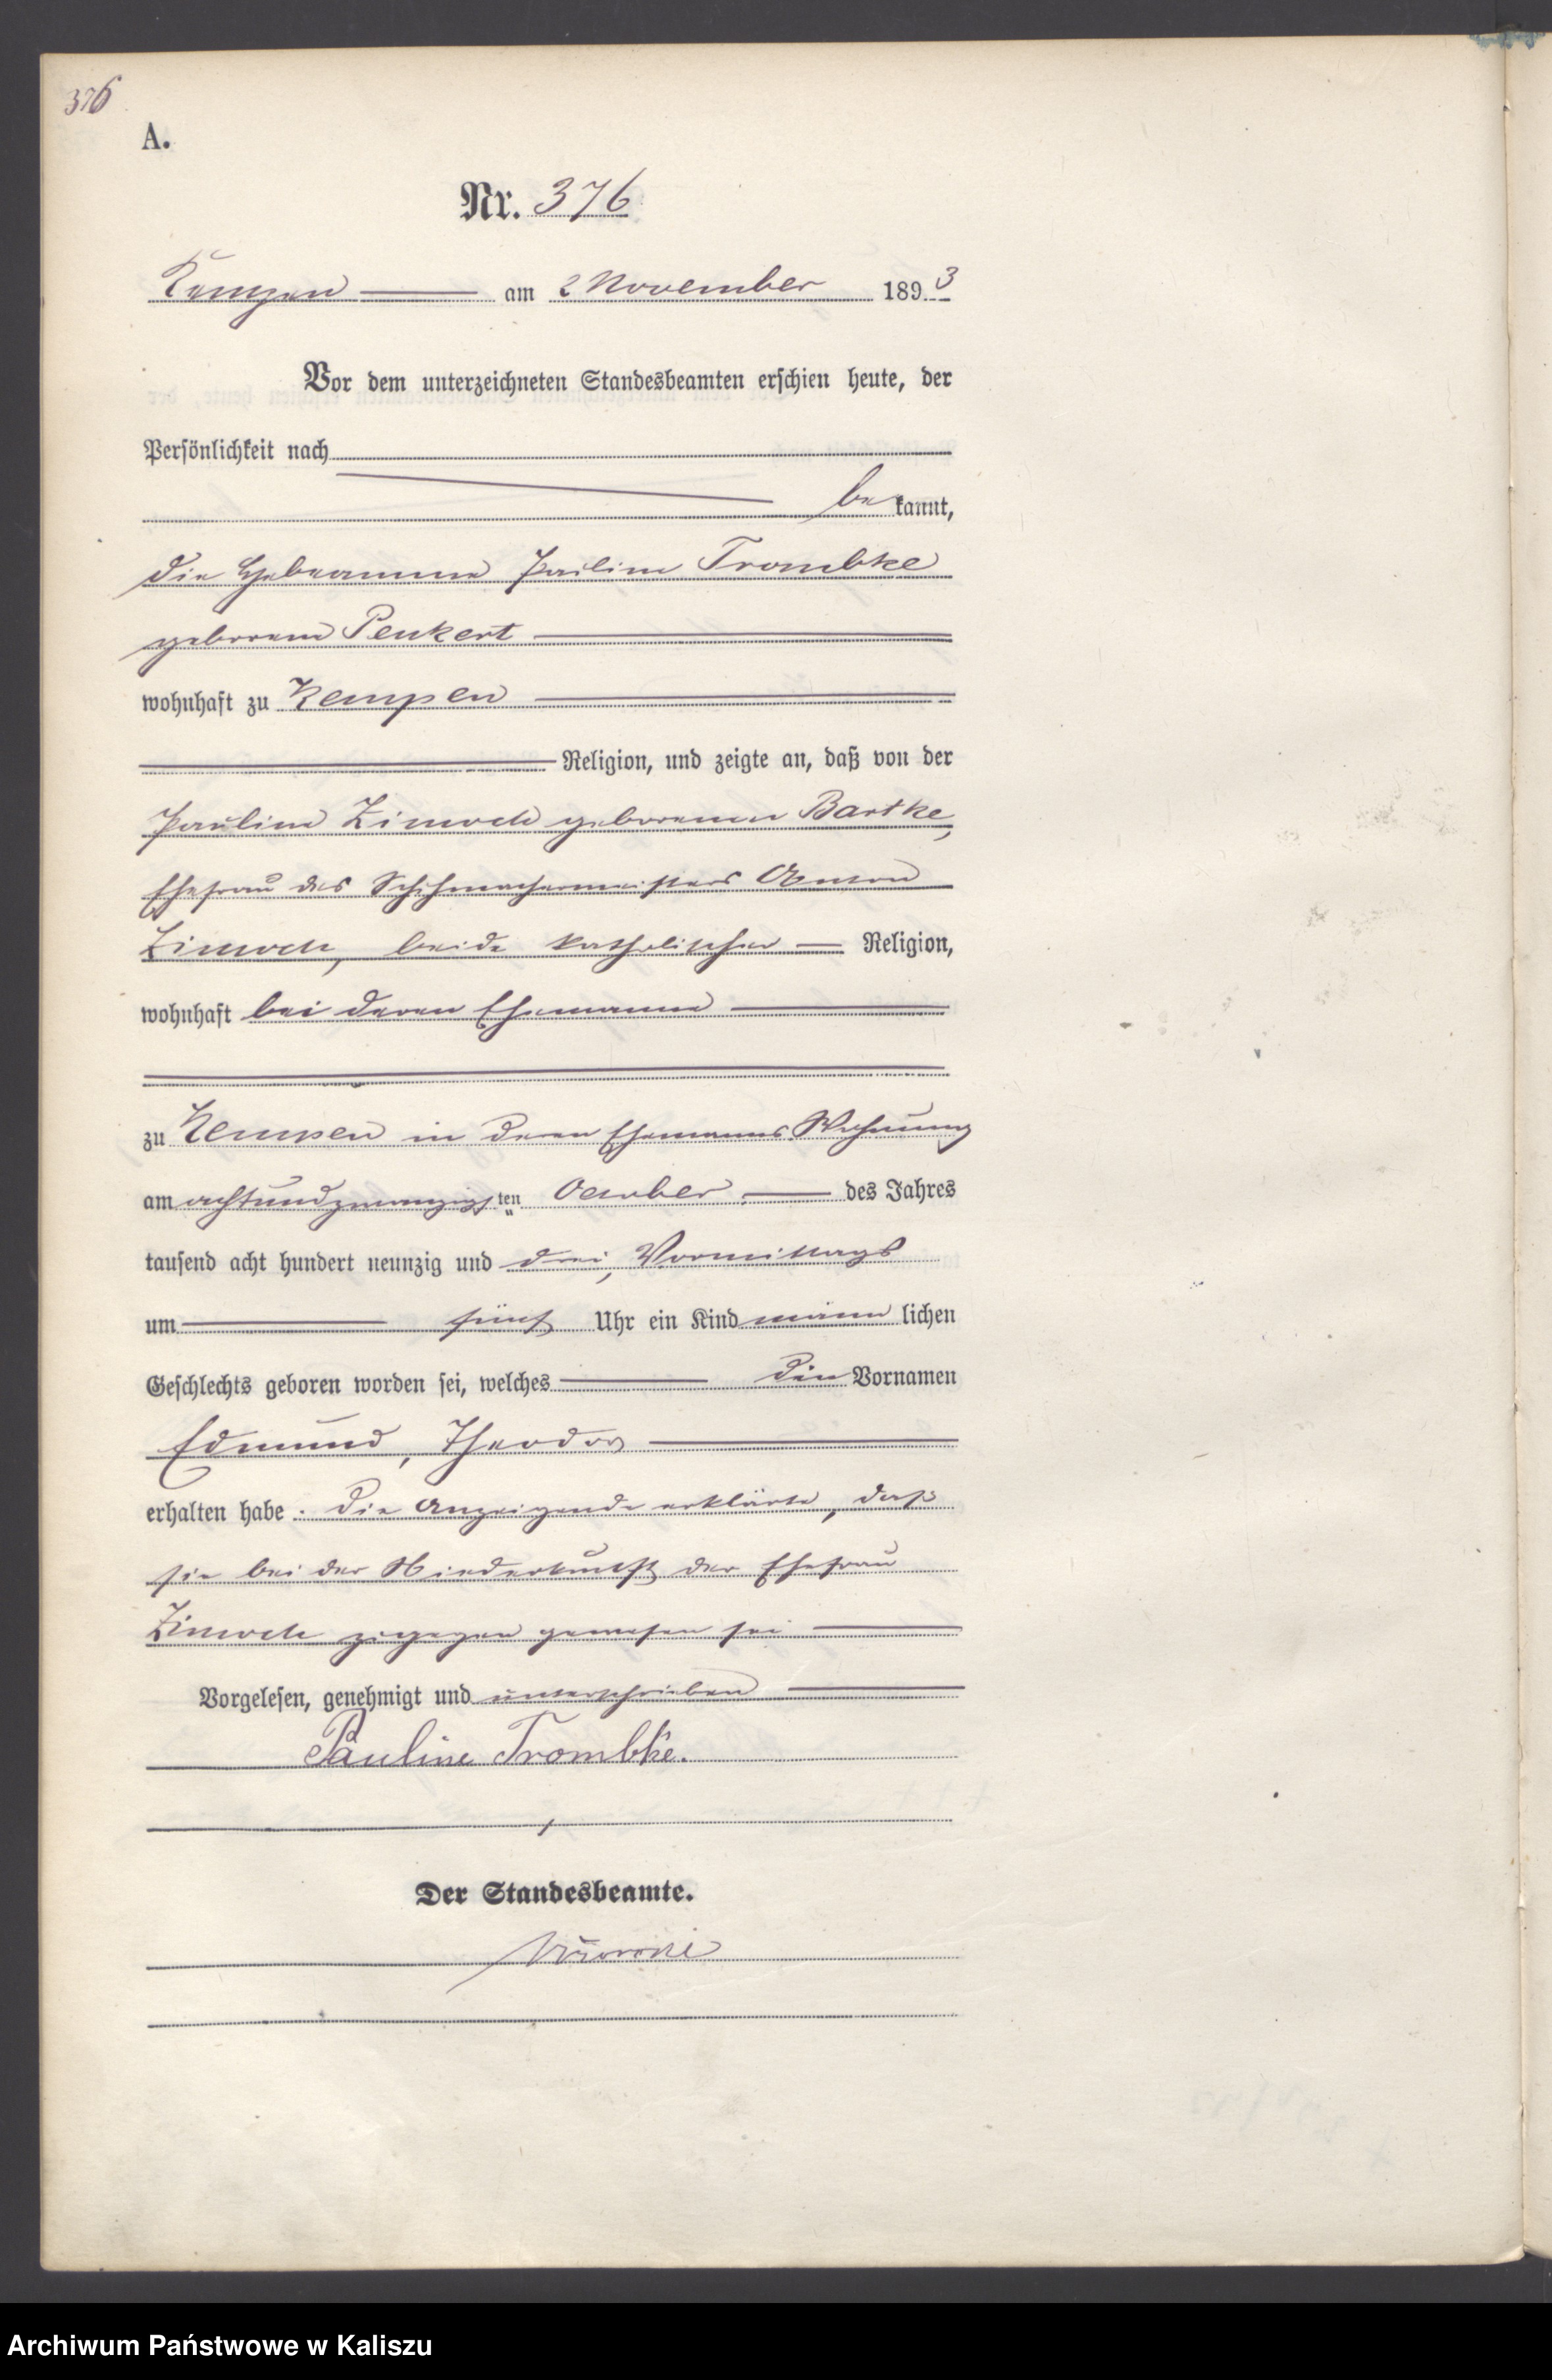 376
A.
Nr. 376
Kempen am 2 November 1893
Vor dem unterzeichneten Standesbeamten erschien heute, der
Persönlichkeit nach
bekannt,
die Hebeamme Pauline Trombke
geborene Penkert
wohnhaft zu Kempen
Religion, und zeigte an, daß von der
Pauline Zimoch geborenen Bartke,
Ehefrau des Schuhmachermeisters Anton
Zimoch, beide katholischer Religion,
wohnhaft bei deren Ehemanne
zu Kempen in deren Ehemanns Wohnung
am achtundzwanzigsten October des Jahres
tausend acht hundert neunzig und drei, Vormittags
um fünf Uhr ein Kind männlichen
Geschlechts geboren worden sei, welches die Vornamen
Edmund, Theodor
erhalten habe. Die Anzeigende erklärte, daß
sie bei der Niederkunft der Ehefrau
Zimoch zugegen gewesen sei
Vorgelesen, genehmigt und unterschrieben
Pauline Trombke.
Der Standesbeamte.
Archiwum Państwowe w Kaliszu